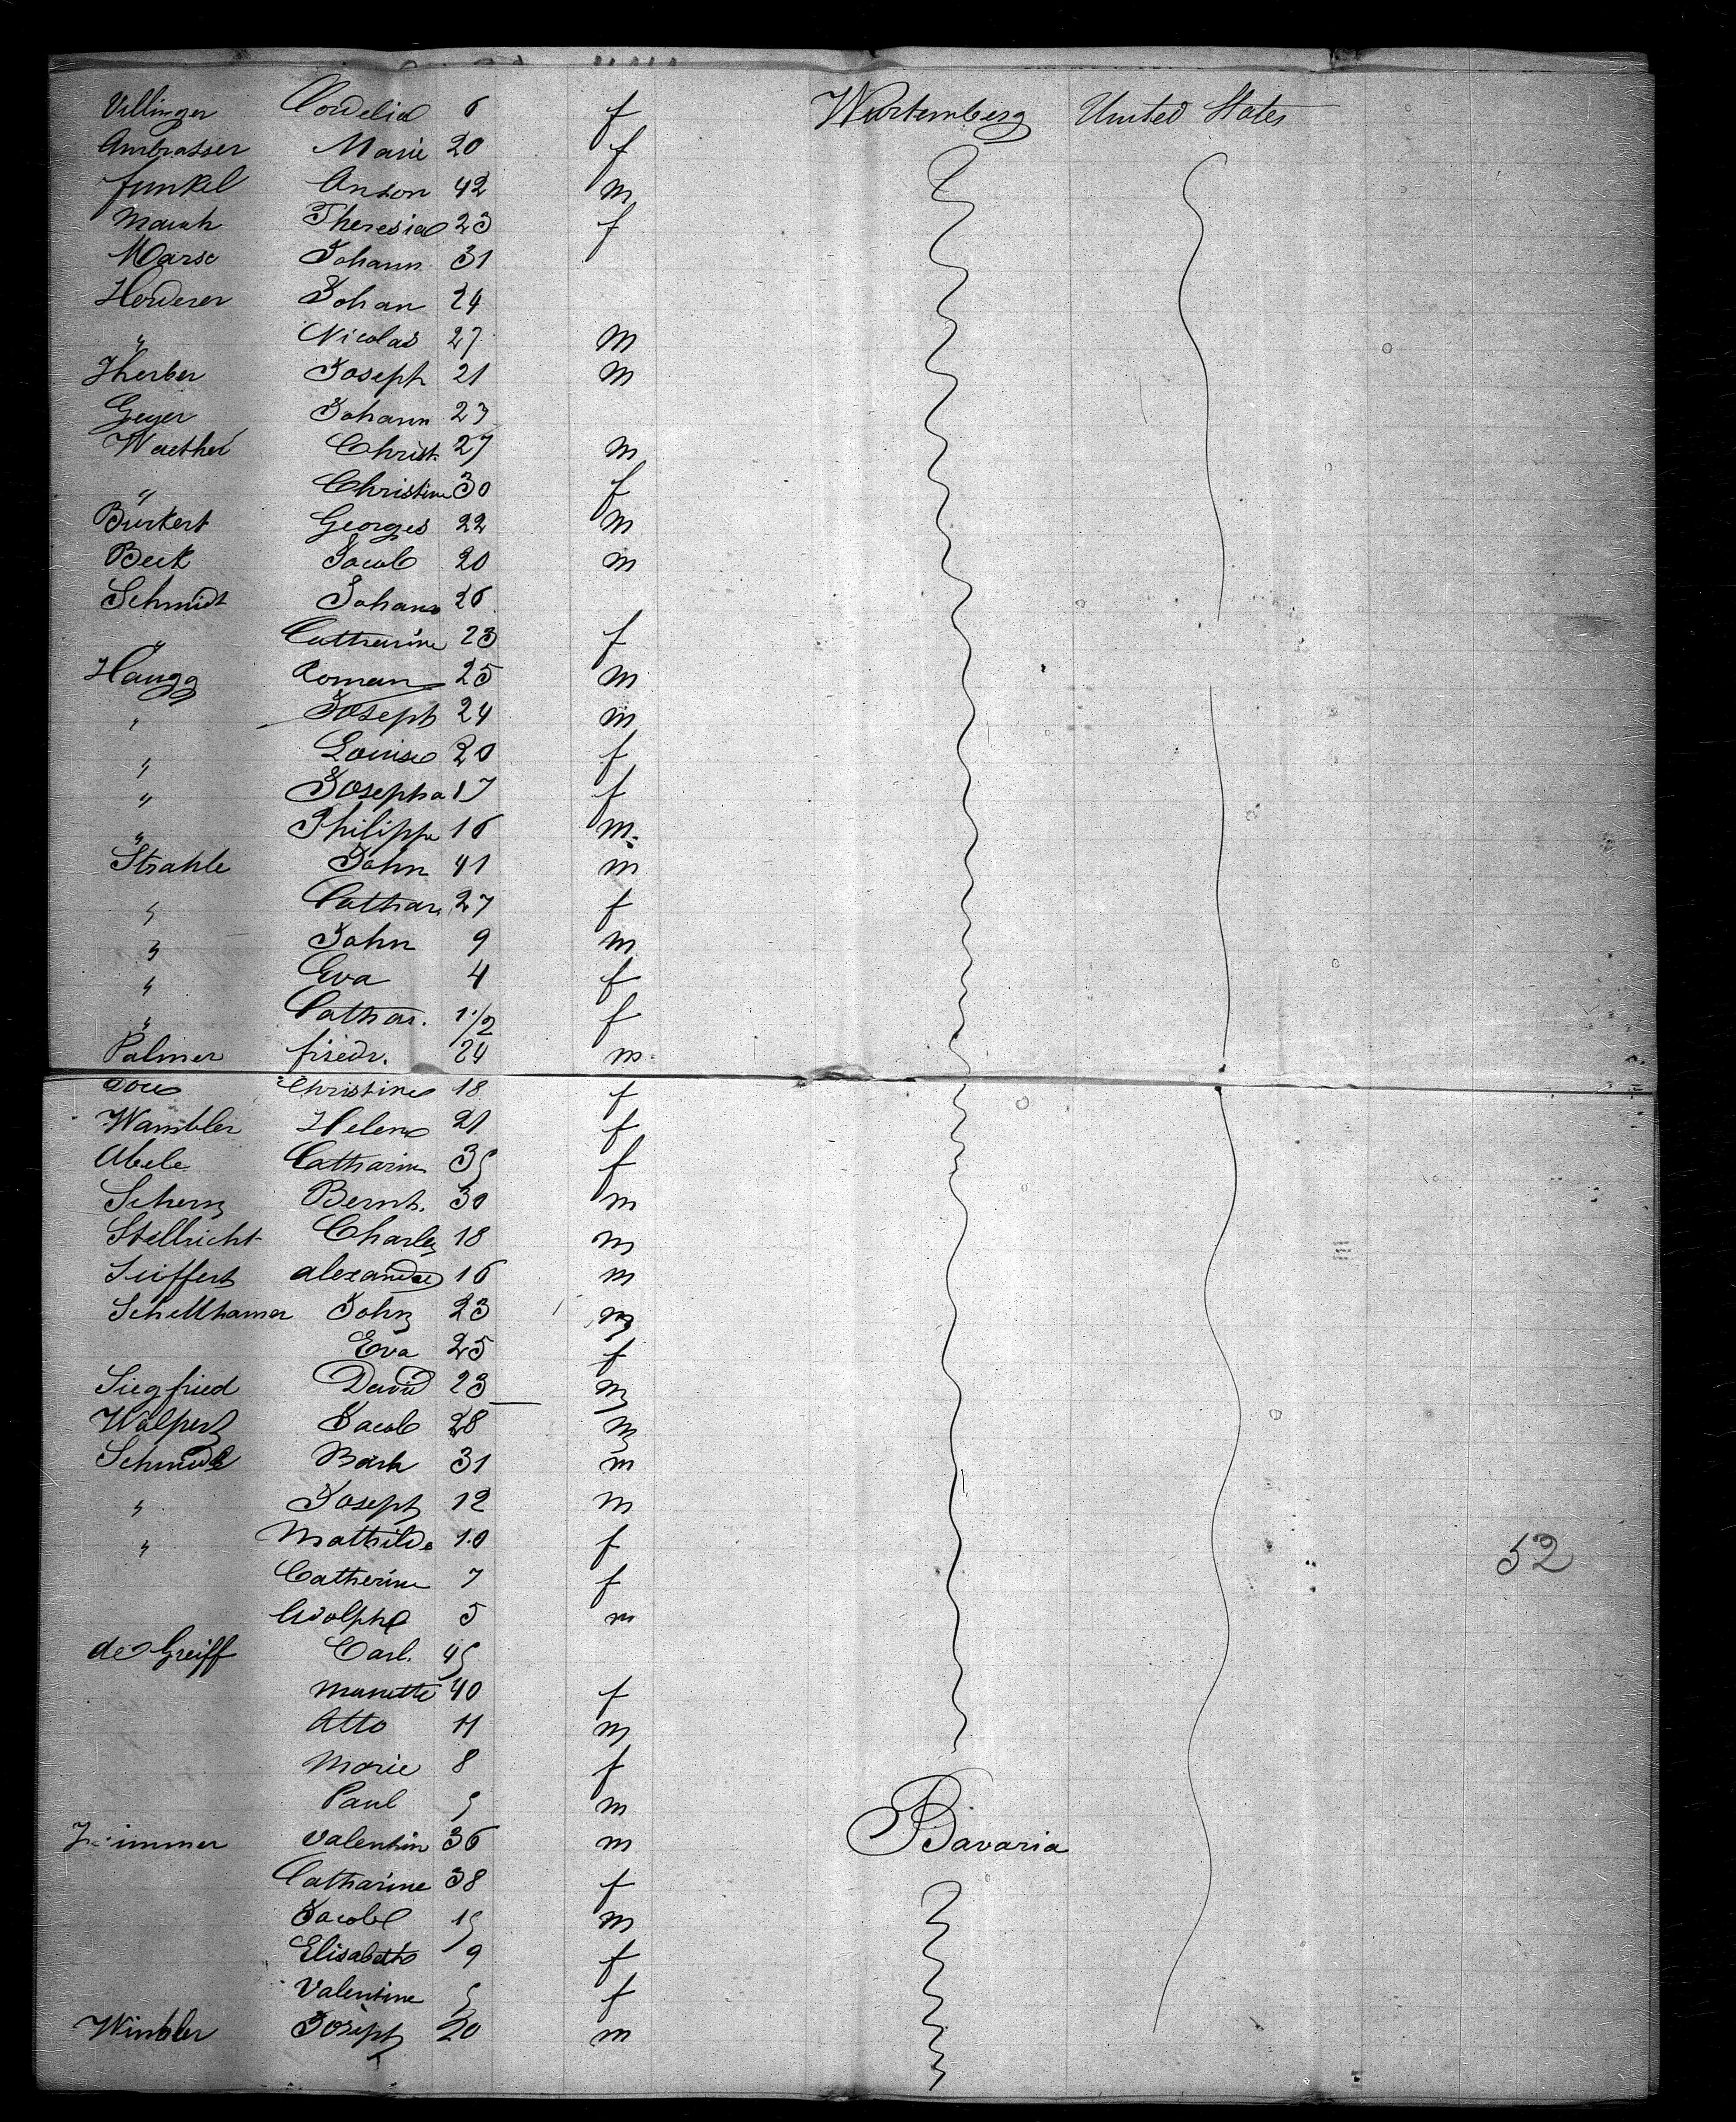 Villinger Cordelia 6 f Wurtemberg United States
Ambrasser Marie 20 f
Funkel Anton 42 m
Mauch Theresia 23 f
Marse Johann 31
Herderer Johan 24
" Nicolas 27 m
Therber Joseph 21 m
Geyer Johann 23
Waether Christ. 27 m
" Christine 30 f
Burkert Georges 22 m
Beck Jacob 20 m
Schmidt Johann 26
" Catharine 23 f
Haugg Roman 25 m
" Joseph 24 m
" Louise 20 f
" Josepha 17 f
" Philippe 16 m
Strahle John 41 m
" Cathar. 27 f
" John 9 m
" Eva 4 f
" Cathar. 1 1/2 f
Palmer friedr. 24 m
Christine 18 f
Wambler Helene 21 f
Abele Catharine 35 f
Scherz Bernh. 30 m
Stellricht Charles 18 m
Seiffert alexandre 16 m
Schellhamer John 23 m
Eva 25 f
Siegfried David 23 m
Walpert Jacob 28 m
Schmidt Barth 31 m
" Joseph 12 m
" Mathilde 10 f
Catherine 7 f
Adolphe 5 m
de Greiff Carl. 45
Manette 40 f
Otto 11 m
Marie 8 f
Paul 5 m
Valentin 36 m Bavaria
Catharine 38 f
Jacob 15 m
Elisabeth 9 f
Valentine 5 f
Winkler Joseph 20 m
52